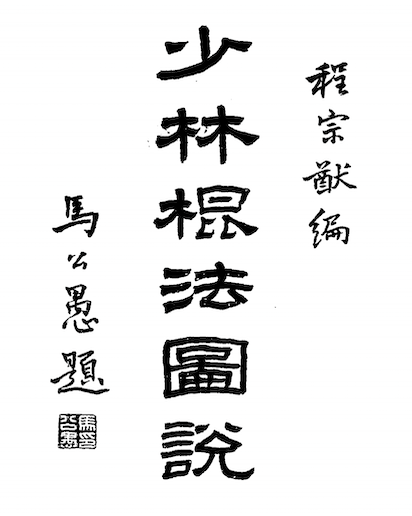 程宗猷編
少林棍法圖說
馬公愚題
馬公愚印